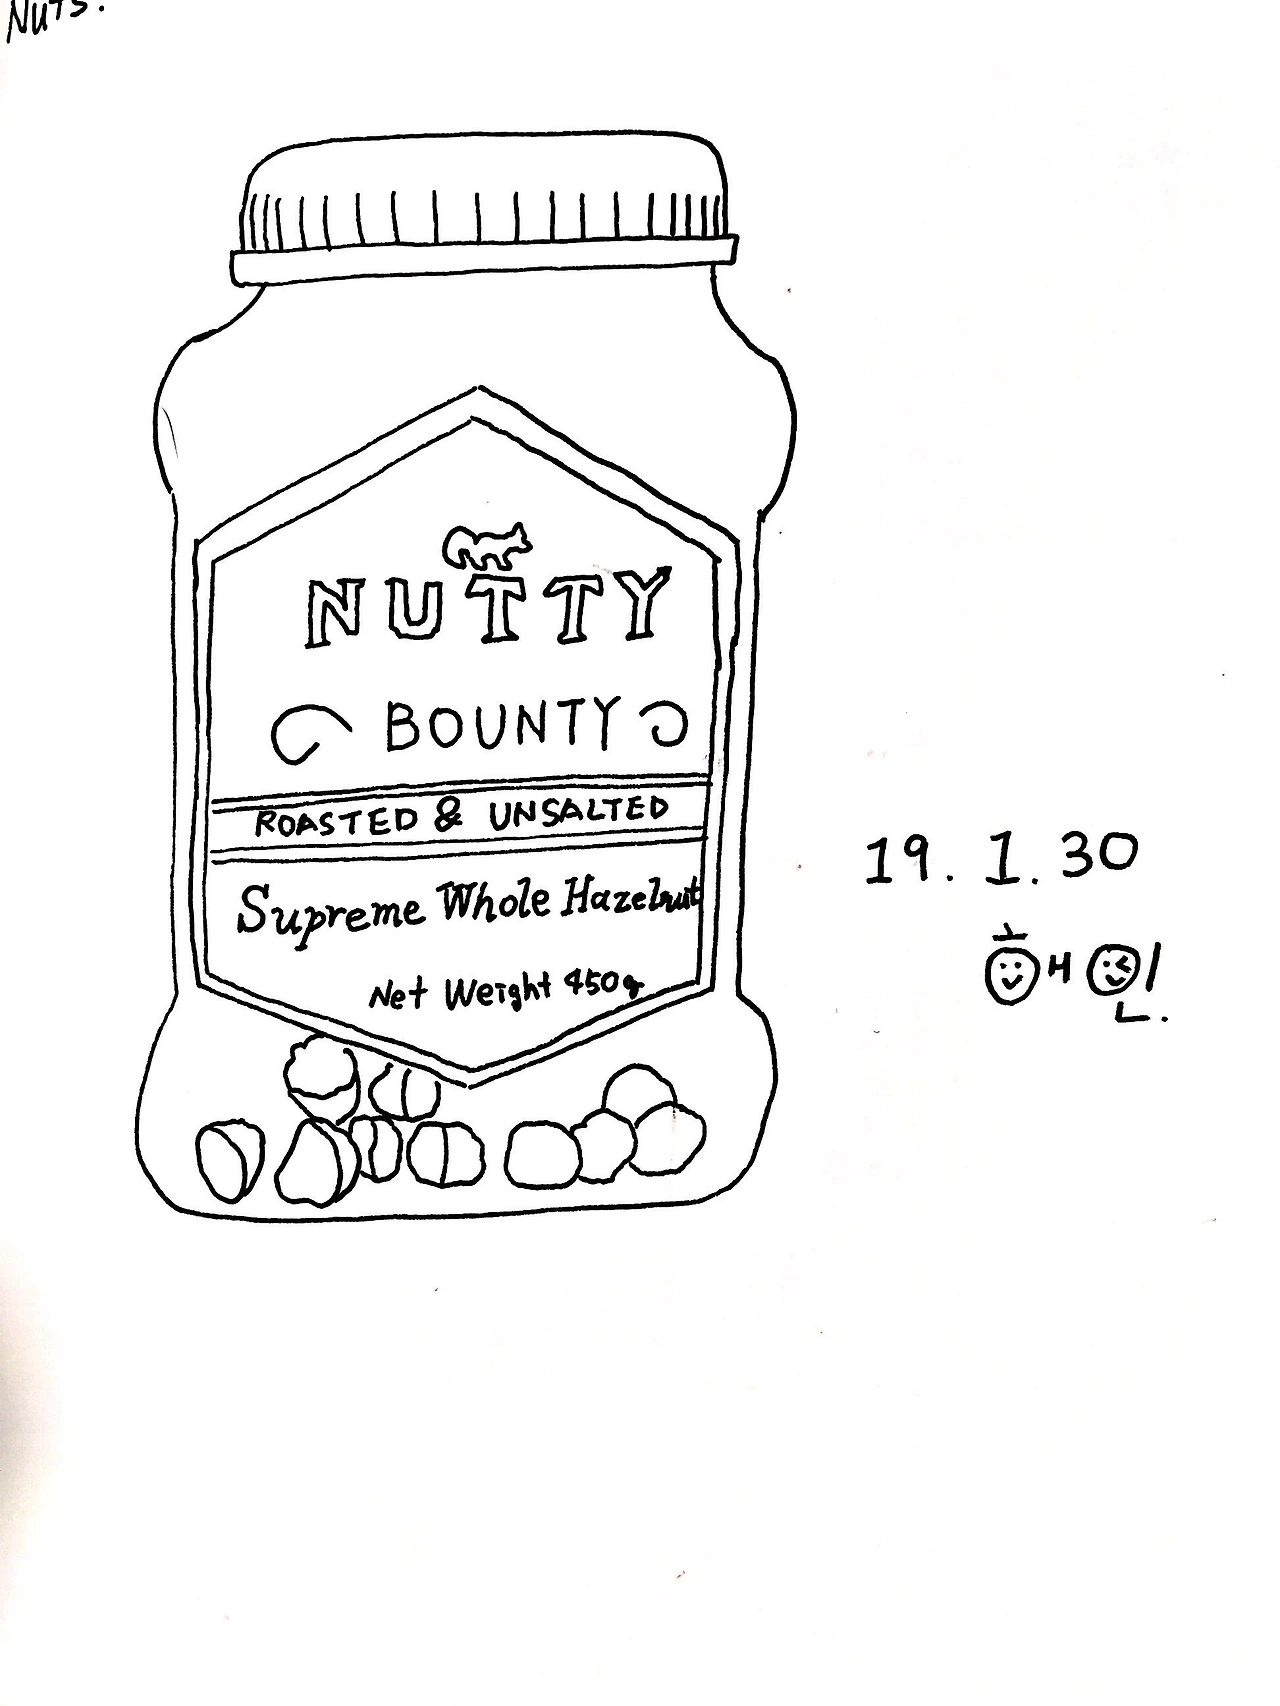 Nuts.
NUTTY
BOUNTY
ROASTED & UNSALTED
Supreme Whole Hazelnut
Net Weight 450g
19. 1. 30
해인.